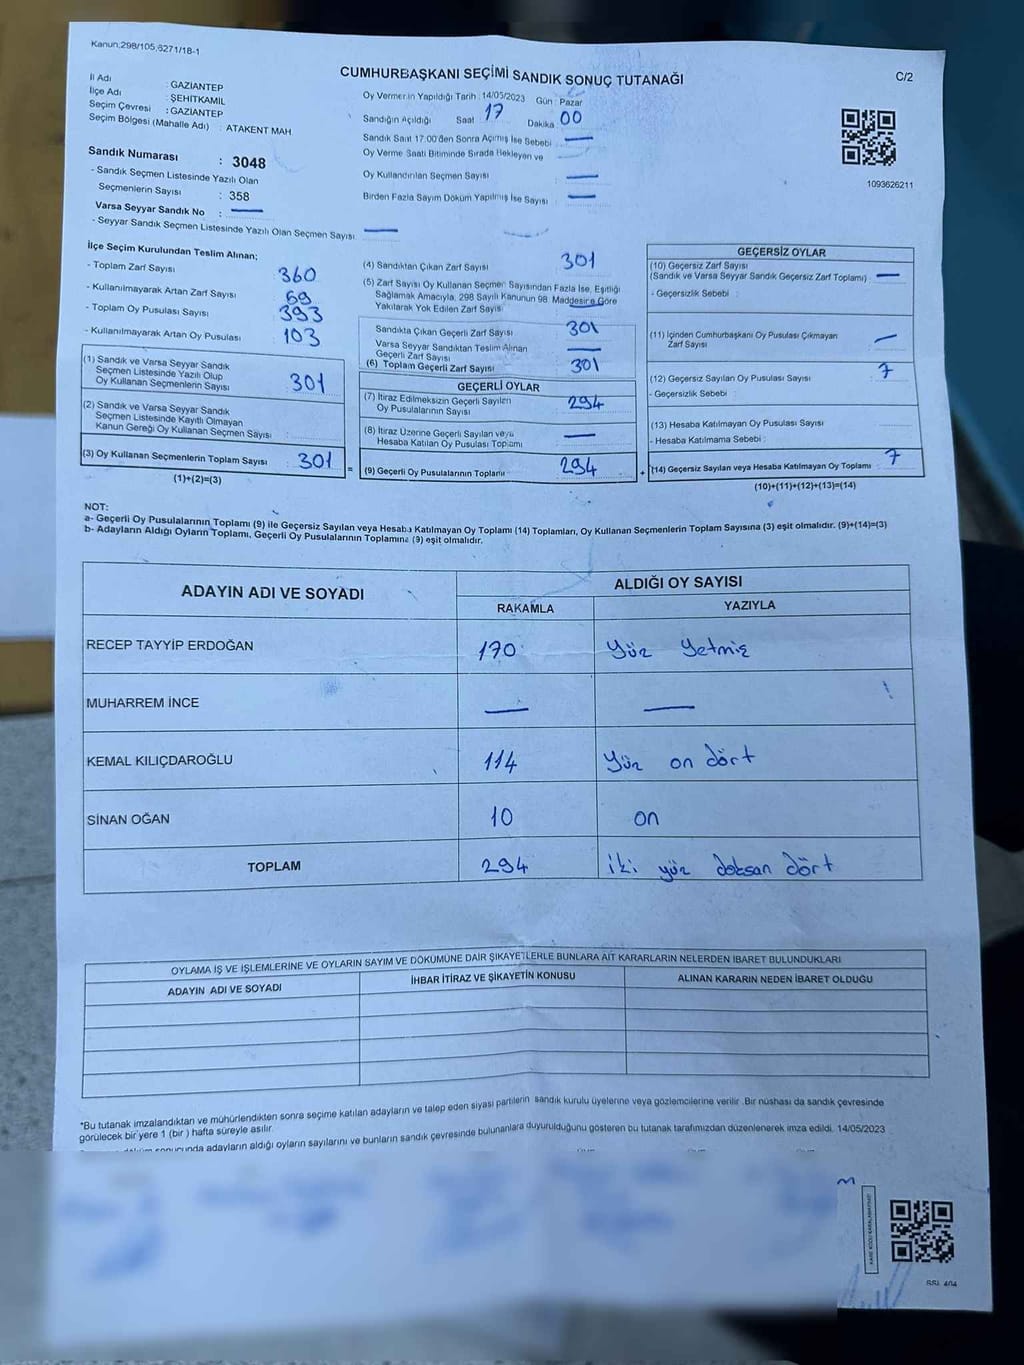 Kanun:298/105,6271/18-1
CUMHURBAŞKANI SEÇİMİ SANDIK SONUÇ TUTANAĞI
C/2
İl Adı : GAZİANTEP
İlçe Adı : ŞEHİTKAMİL
Seçim Çevresi : GAZİANTEP
Seçim Bölgesi (Mahalle Adı) : ATAKENT MAH
Oy Vermenin Yapıldığı Tarih : 14/05/2023 Gün : Pazar
Sandığın Açıldığı Saat 17 Dakika 00
Sandık Saat 17:00'den Sonra Açılmış İse Sebebi —
Oy Verme Saati Bitiminde Sırada Bekleyen ve
Oy Kullandırılan Seçmen Sayısı —
Birden Fazla Sayım Döküm Yapılmış İse Sayısı —
1093626211
Sandık Numarası : 3048
- Sandık Seçmen Listesinde Yazılı Olan
Seçmenlerin Sayısı : 358
Varsa Seyyar Sandık No : —
- Seyyar Sandık Seçmen Listesinde Yazılı Olan Seçmen Sayısı : —
İlçe Seçim Kurulundan Teslim Alınan;
- Toplam Zarf Sayısı 360
- Kullanılmayarak Artan Zarf Sayısı 69
- Toplam Oy Pusulası Sayısı 393
- Kullanılmayarak Artan Oy Pusulası 103
(1) Sandık ve Varsa Seyyar Sandık
Seçmen Listesinde Yazılı Olup
Oy Kullanan Seçmenlerin Sayısı 301
(2) Sandık ve Varsa Seyyar Sandık
Seçmen Listesinde Kayıtlı Olmayan
Kanun Gereği Oy Kullanan Seçmen Sayısı
(3) Oy Kullanan Seçmenlerin Toplam Sayısı 301 =
(1)+(2)=(3)
(4) Sandıktan Çıkan Zarf Sayısı 301
(5) Zarf Sayısı Oy Kullanan Seçmen Sayısından Fazla İse, Eşitliği
Sağlamak Amacıyla, 298 Sayılı Kanunun 98. Maddesine Göre
Yakılarak Yok Edilen Zarf Sayısı —
Sandıkta Çıkan Geçerli Zarf Sayısı 301
Varsa Seyyar Sandıktan Teslim Alınan
Geçerli Zarf Sayısı —
(6) Toplam Geçerli Zarf Sayısı 301
GEÇERLİ OYLAR
(7) İtiraz Edilmeksizin Geçerli Sayılan
Oy Pusulalarının Sayısı 294
(8) İtiraz Üzerine Geçerli Sayılan veya
Hesaba Katılan Oy Pusulası Toplamı —
(9) Geçerli Oy Pusulalarının Toplamı 294 +
GEÇERSİZ OYLAR
(10) Geçersiz Zarf Sayısı
(Sandık ve Varsa Seyyar Sandık Geçersiz Zarf Toplamı) : —
- Geçersizlik Sebebi :
(11) İçinden Cumhurbaşkanı Oy Pusulası Çıkmayan
Zarf Sayısı —
(12) Geçersiz Sayılan Oy Pusulası Sayısı 7
- Geçersizlik Sebebi :
(13) Hesaba Katılmayan Oy Pusulası Sayısı
- Hesaba Katılmama Sebebi :
(14) Geçersiz Sayılan veya Hesaba Katılmayan Oy Toplamı 7
(10)+(11)+(12)+(13)=(14)
NOT:
a- Geçerli Oy Pusulalarının Toplamı (9) ile Geçersiz Sayılan veya Hesaba Katılmayan Oy Toplamı (14) Toplamları, Oy Kullanan Seçmenlerin Toplam Sayısına (3) eşit olmalıdır. (9)+(14)=(3)
b- Adayların Aldığı Oyların Toplamı, Geçerli Oy Pusulalarının Toplamına (9) eşit olmalıdır.
ADAYIN ADI VE SOYADI
ALDIĞI OY SAYISI
RAKAMLA YAZIYLA
RECEP TAYYİP ERDOĞAN 170 Yüz Yetmiş
MUHARREM İNCE — —
KEMAL KILIÇDAROĞLU 114 Yüz on dört
SİNAN OĞAN 10 on
TOPLAM 294 iki yüz doksan dört
OYLAMA İŞ VE İŞLEMLERİNE VE OYLARIN SAYIM VE DÖKÜMÜNE DAİR ŞİKAYETLERLE BUNLARA AİT KARARLARIN NELERDEN İBARET BULUNDUKLARI
ADAYIN ADI VE SOYADI İHBAR İTİRAZ VE ŞİKAYETİN KONUSU ALINAN KARARIN NEDEN İBARET OLDUĞU
*Bu tutanak imzalandıktan ve mühürlendikten sonra seçime katılan adayların ve talep eden siyasi partilerin sandık kurulu üyelerine veya gözlemcilerine verilir. Bir nüshası da sandık çevresinde
görülecek bir yere 1 (bir) hafta süreyle asılır.
adayların aldığı oyların sayılarını ve bunların sandık çevresinde bulunanlara duyurulduğunu gösteren bu tutanak tarafımızdan düzenlenerek imza edildi. 14/05/2023